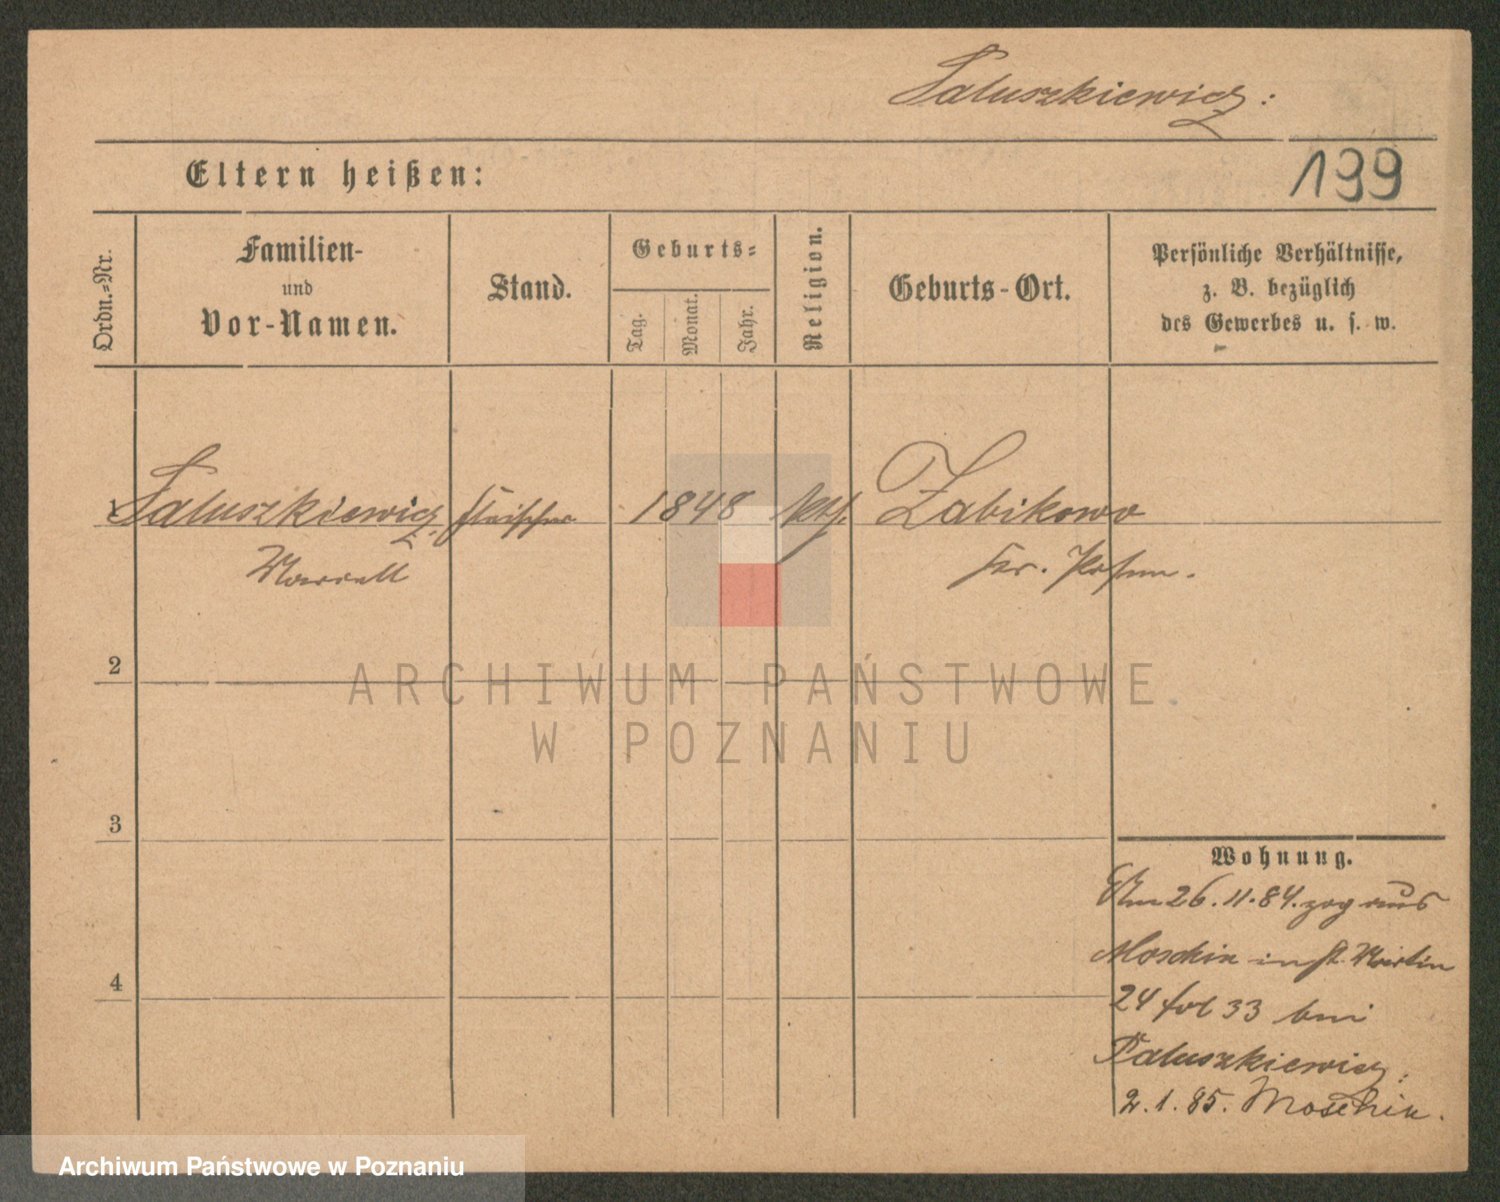 Paluszkiewicz:
Eltern heißen:
199
Ordn.-Nr.
Familien-
und
Vor-Namen.
Stand.
Geburts-
Tag.
Monat.
Jahr.
Religion.
Geburts-Ort.
Persönliche Verhältnisse,
z. B. bezüglich
des Gewerbes u. s. w.
1 Paluszkiewicz Fleischer 1848 kth. Zabikowo
Marcell Kr. Posen.
2
ARCHIWUM PAŃSTWOWE
W POZNANIU
3
Wohnung.
Am 26.11.84. zog aus
Moschin in St. Martin
24 fol 33 bei
Paluszkiewicz.
4
2.1.85. Moschin.
Archiwum Państwowe w Poznaniu